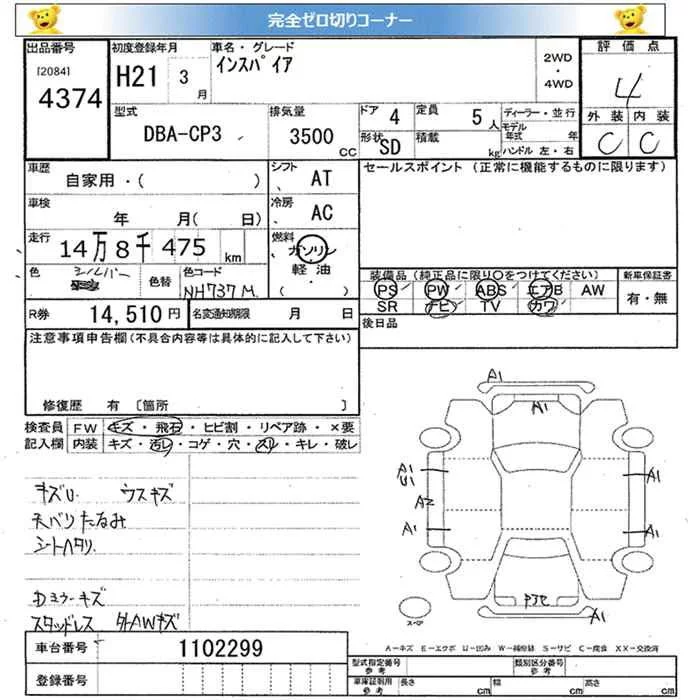 完全ゼロ切りコーナー
出品番号 初度登録年月 車名・グレード 評価点
[2084] H21 3月 インスパイア 2WD・4WD 4
4374
型式 排気量 ドア 4 定員 5人 ディーラー・並行 外装 内装
DBA-CP3 3500CC 形状 SD 積載 kg モデル年式 年 C C
ハンドル 左・右
車歴 シフト セールスポイント (正常に機能するものに限ります)
自家用・( ) AT
車検 冷房
年 月( 日) AC
走行 燃料
14万8千475km ガソリン
軽油
・( )
色 シルバー 色替 色コード NH737M 装備品 (純正品に限り○をつけてください) 新車保証書
PS PW ABS エアB AW 有・無
R券 14,510円 名変通知期限 月 日 SR ナビ TV カワ
注意事項申告欄(不具合内容等は具体的に記入して下さい) 後日品
修復歴 有 [箇所 ]
検査員 FW キズ・飛石・ヒビ割・リペア跡・×要
記入欄 内装 キズ・汚レ・コゲ・穴・スレ・キレ・破レ
キズU ウスキズ
天バリたなみ
シートヘタリ
Dミラーキズ
スタッドレス 外AWキズ
A1
A1
A1
U1
A1
A2
A1
A1
A1
スペア
A-キズ E-エクボ U-凹み W-補修跡 S-サビ C-腐食 XX-交換済
車台番号 1102299
登録番号
型式指定番号 参考 類別区分番号 参考
車庫証明用 参考 長さ cm 幅 cm 高さ cm